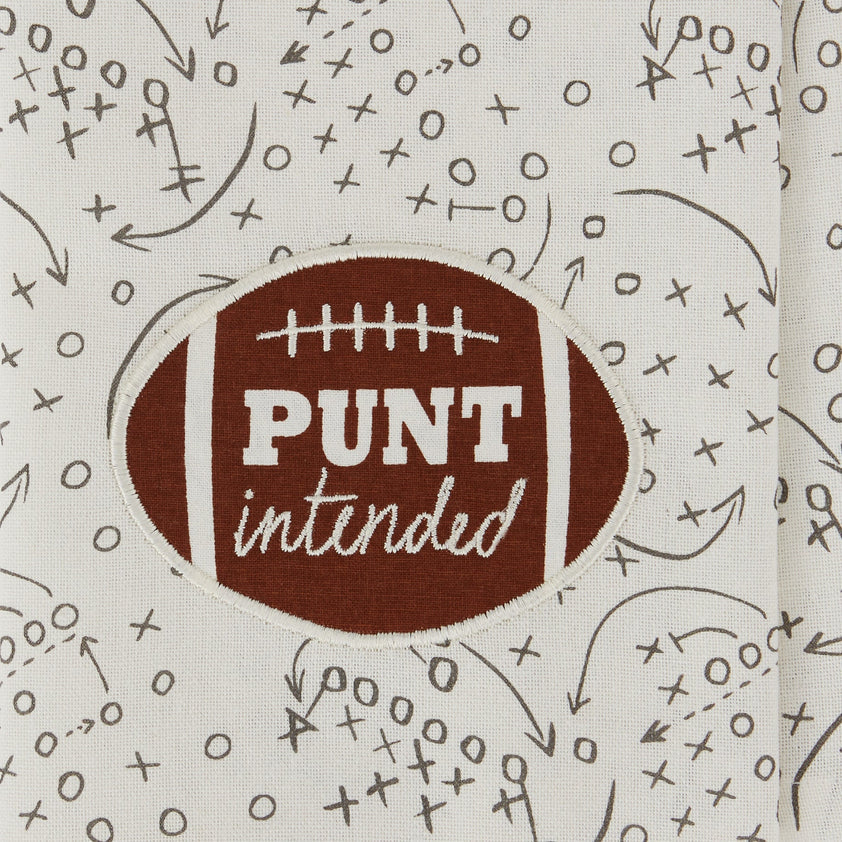 PUNT
intended